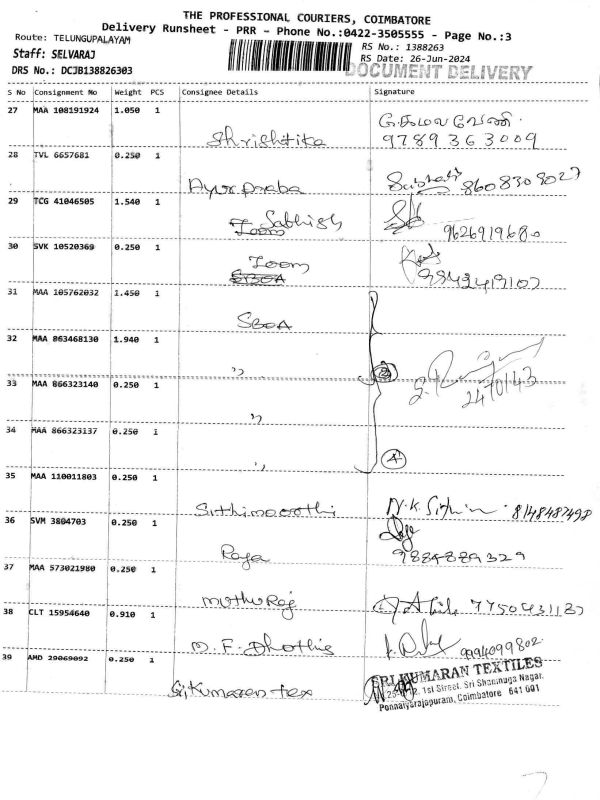 THE PROFESSIONAL COURIERS, COIMBATORE
Delivery Runsheet - PRR - Phone No.:0422-3505555 - Page No.:3
Route: TELUNGUPALAYAM
RS No.: 1388263
Staff: SELVARAJ
RS Date: 26-Jun-2024
DRS No.: DCJB138826303
DOCUMENT DELIVERY
S No Consignment No Weight PCS Consignee Details Signature
27 MAA 108191924 1.050 1
Shrishtika 9789363009
28 TVL 6657681 0.250 1
Ayurpraba 8608308027
29 TCG 41046505 1.540 1
Sabhish 9626919680
30 SVK 10520369 0.250 1
Zoom 9842419107
31 MAA 105762032 1.450 1
SBOA
32 MAA 863468130 1.940 1
"
33 MAA 866323140 0.250 1
" 2470143
34 MAA 866323137 0.250 1
"
35 MAA 110011803 0.250 1
8148487498
36 SVM 3804703 0.250 1
Raja 9884889329
37 MAA 573021980 0.250 1
Muthuraj
38 CLT 15954640 0.910 1
M.F. Dhothis 9994099802
39 AMD 29069092 0.250 1
Sri Kumaran tex
SRI KUMARAN TEXTILES
1st Street, Sri Shanmuga Nagar,
Ponnaiyarajapuram, Coimbatore 641 001